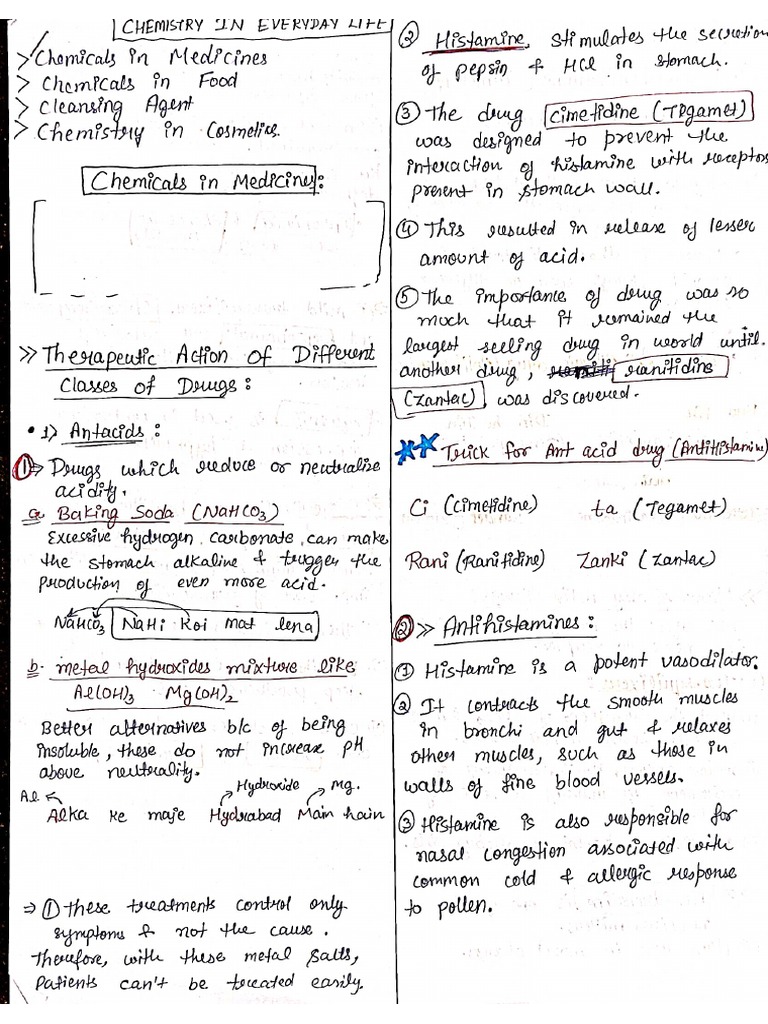 CHEMISTRY IN EVERYDAY LIFE
> Chemicals in Medicines
> Chemicals in Food
> Cleansing Agent
> Chemistry in Cosmetics.
Chemicals in Medicines:
>> Therapeutic Action Of Different
Classes of Drugs:
• 1) Antacids:
1 => Drugs which reduce or neutralise
acidity.
a. Baking Soda (NaHCO3)
Excessive hydrogen carbonate can make
the stomach alkaline & trugger the
production of even more acid.
NaHCO3 NaHi Koi mat lena
b. metal hydroxides mixture like
Al(OH)3 Mg(OH)2
Better alternatives b/c of being
insoluble, these do not increase pH
above neutrality.
Al. Hydroxide Mg.
Alka ke maje Hydrabad Main hain
=> ① These treatments control only
symptoms & not the cause.
Therefore, with these metal salts,
Patients can't be treated easily.
② Histamine, stimulates the secretion
of pepsin & HCl in stomach.
③ The drug cimetidine (Tegamet)
was designed to prevent the
interaction of histamine with receptos
present in stomach wall.
④ This resulted in release of lesser
amount of acid.
⑤ The importance of drug was so
much that it remained the
largest seeling drug in world until.
another drug, ranitidins
(Zantac), was discovered.
** Trick for Ant acid drug (Antihistamine)
Ci (Cimetidine) ta (Tegamet)
Rani (Ranitidine) Zanki (Zantac)
② >> Antihistamines:
① Histamine is a potent vasodilator.
② It contracts the smooth muscles
in bronchi and gut & relaxes
other muscles, such as those in
walls of fine blood vessels.
③ Histamine is also responsible for
nasal congestion associated with
common cold & allergic response
to pollen.